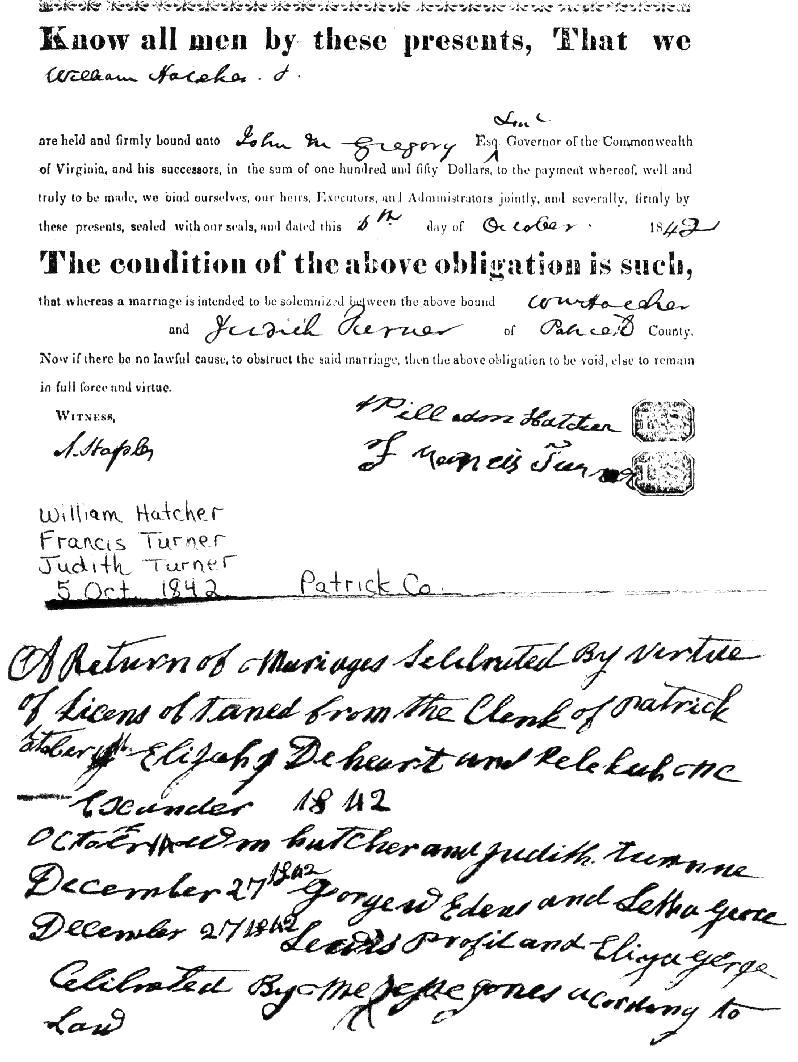 Know all men by these presents, That we
William Hatcher &
Lieut
are held and firmly bound unto John M Gregory Esq. Governor of the Commonwealth
of Virginia, and his successors, in the sum of one hundred and fifty Dollars, to the payment whereof, well and
truly to be made, we bind ourselves, our heirs, Executors, and Administrators jointly, and severally, firmly by
these presents, sealed with our seals, and dated this 5th day of October 1842
The condition of the above obligation is such,
that whereas a marriage is intended to be solemnized between the above bound Wm Hatcher
and Judith Turner of Patrick County.
Now if there be no lawful cause, to obstruct the said marriage, then the above obligation to be void, else to remain
in full force and virtue.
WITNESS,
William Hatcher
A. Staples
Francis Turner
William Hatcher
Francis Turner
Judith Turner
5 Oct 1842 Patrick Co.
A Return of Mariages Selebrated By virtue
of Licens obtaned from the Clenk of patrick
Elijah Deheart and
Exander 1842
October Wm hutcher and Judith turnne
December 27 1842 George W Edens and Letha george
December 27 1842 Lewis Profit and Eliza gerge
Celibrated By Me Jesse Jones acordng to
Law